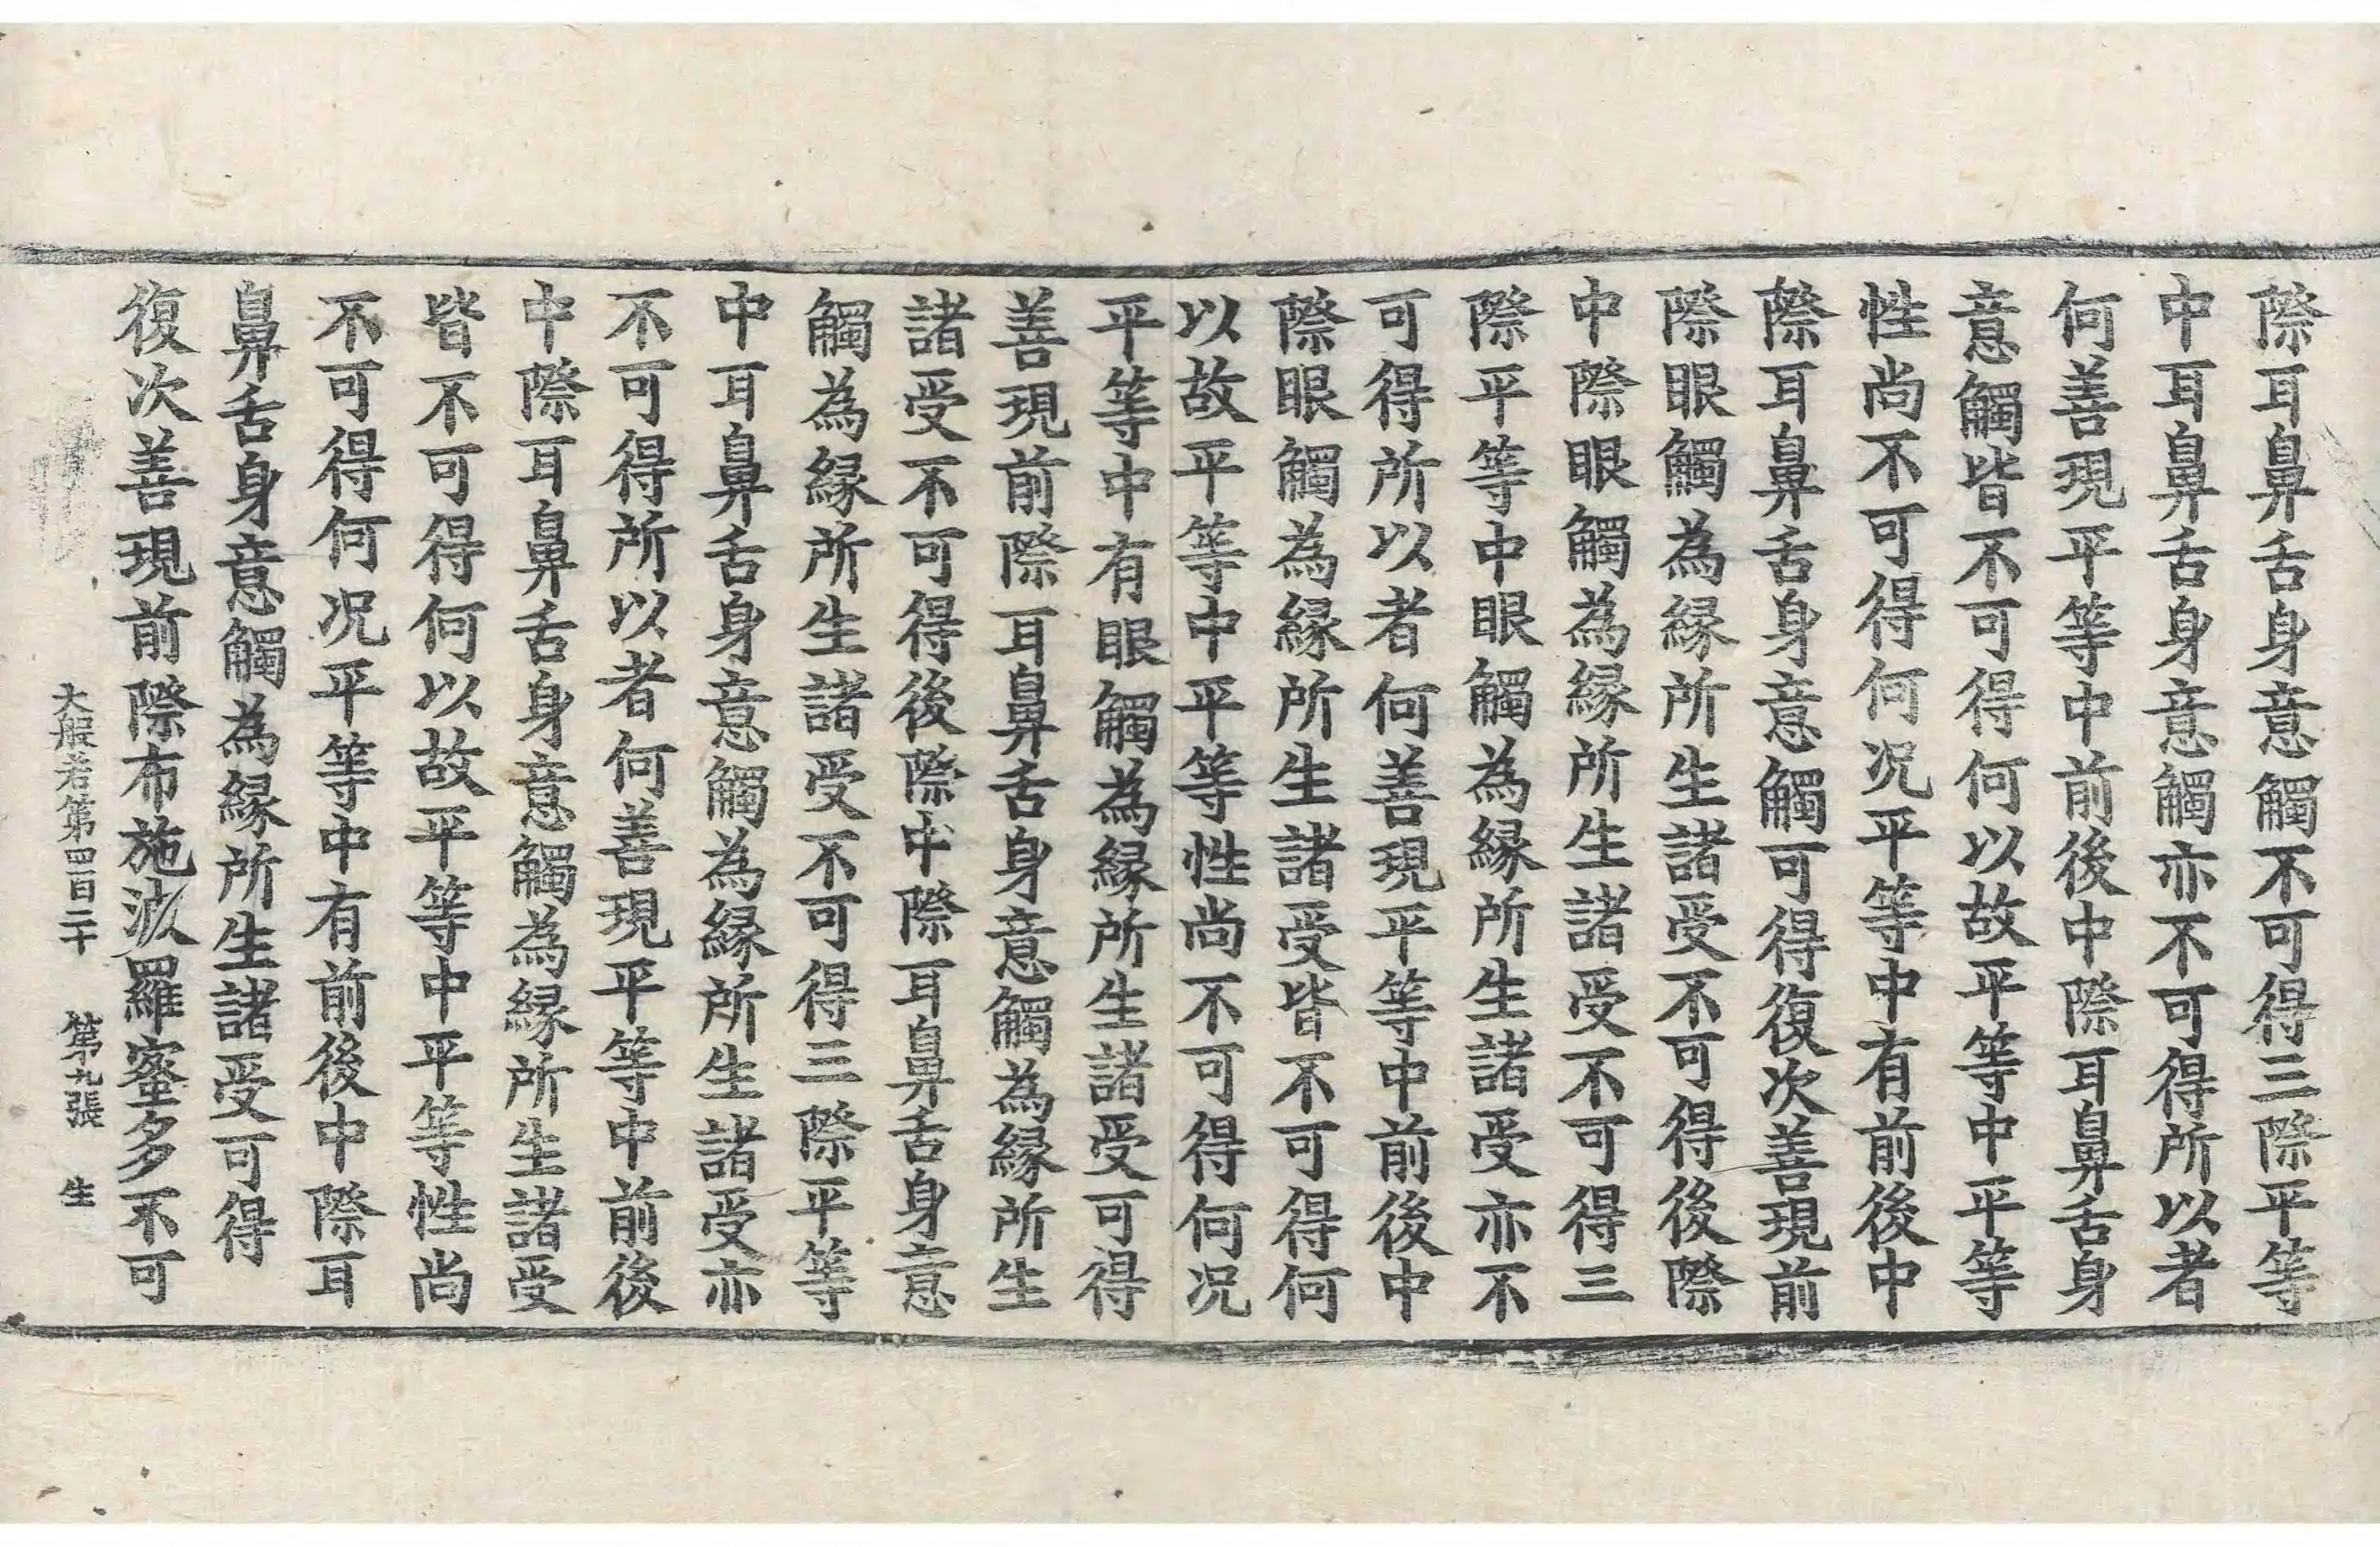 際耳鼻舌身意觸不可得三際平等
中耳鼻舌身意觸亦不可得所以者
何善現平等中前後中際耳鼻舌身
意觸皆不可得何以故平等中平等
性尚不可得何况平等中有前後中
際耳鼻舌身意觸可得復次善現前
際眼觸為緣所生諸受不可得後際
中際眼觸為緣所生諸受不可得三
際平等中眼觸為緣所生諸受亦不
可得所以者何善現平等中前後中
際眼觸為緣所生諸受皆不可得何
以故平等中平等性尚不可得何况
平等中有眼觸為緣所生諸受可得
善現前際耳鼻舌身意觸為緣所生
諸受不可得後際中際耳鼻舌身意
觸為緣所生諸受不可得三際平等
中耳鼻舌身意觸為緣所生諸受亦
不可得所以者何善現平等中前後
中際耳鼻舌身意觸為緣所生諸受
皆不可得何以故平等中平等性尚
不可得何况平等中有前後中際耳
鼻舌身意觸為緣所生諸受可得
復次善現前際布施波羅蜜多不可
大般若第四百二十 第十九張 生